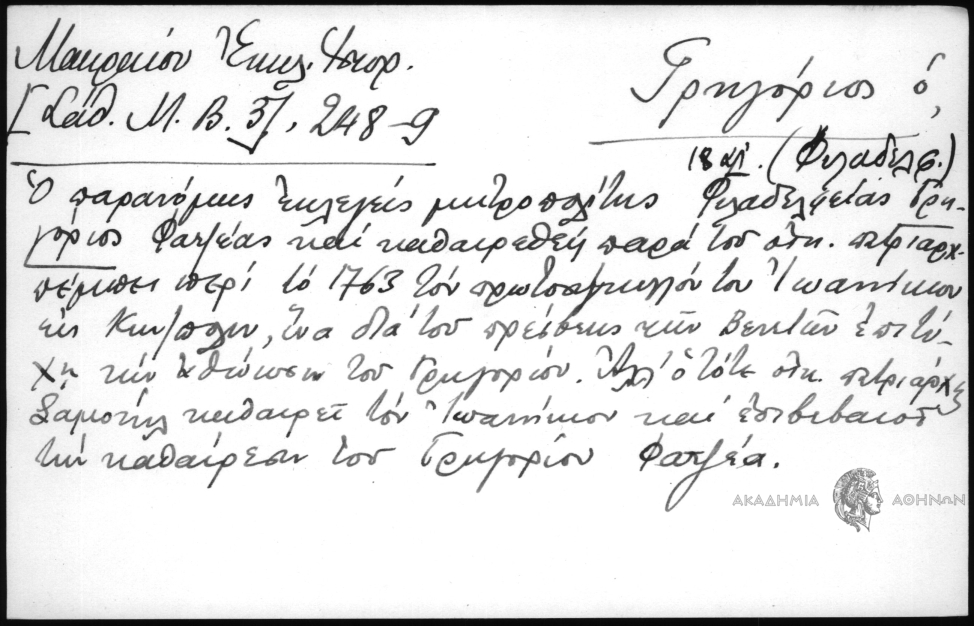 Μακραίου Ἐκκλ. Ἱστορ.
[Σάθ. Μ. Β. 3], 248-9
Γρηγόριος ὁ,
18 αἰ. (Φιλαδελφ.)
Ὁ παρανόμως ἐκλεγείς μητροπολίτης Φιλαδελφείας Γρη-
γόριος Φατζέας καί καθαιρεθείς παρά τοῦ οἰκ. πατριαρχ.
πέμπει περί τό 1763 τόν πρωτοσύγκελλόν του Ἰωαννίκιον
εἰς Κων/πολιν, ἵνα διά τοῦ πρέσβεως τῶν Βενετῶν ἐπιτύ-
χῃ τήν ἀθώωσιν τοῦ Γρηγορίου. Ἀλλ' ὁ τότε οἰκ. πατριάρχης
Σαμουήλ καθαιρεῖ τόν Ἰωαννίκιον καί ἐπιβεβαιοῖ
τήν καθαίρεσιν τοῦ Γρηγορίου Φατζέα.
ΑΚΑΔΗΜΙΑ ΑΘΗΝΩΝ